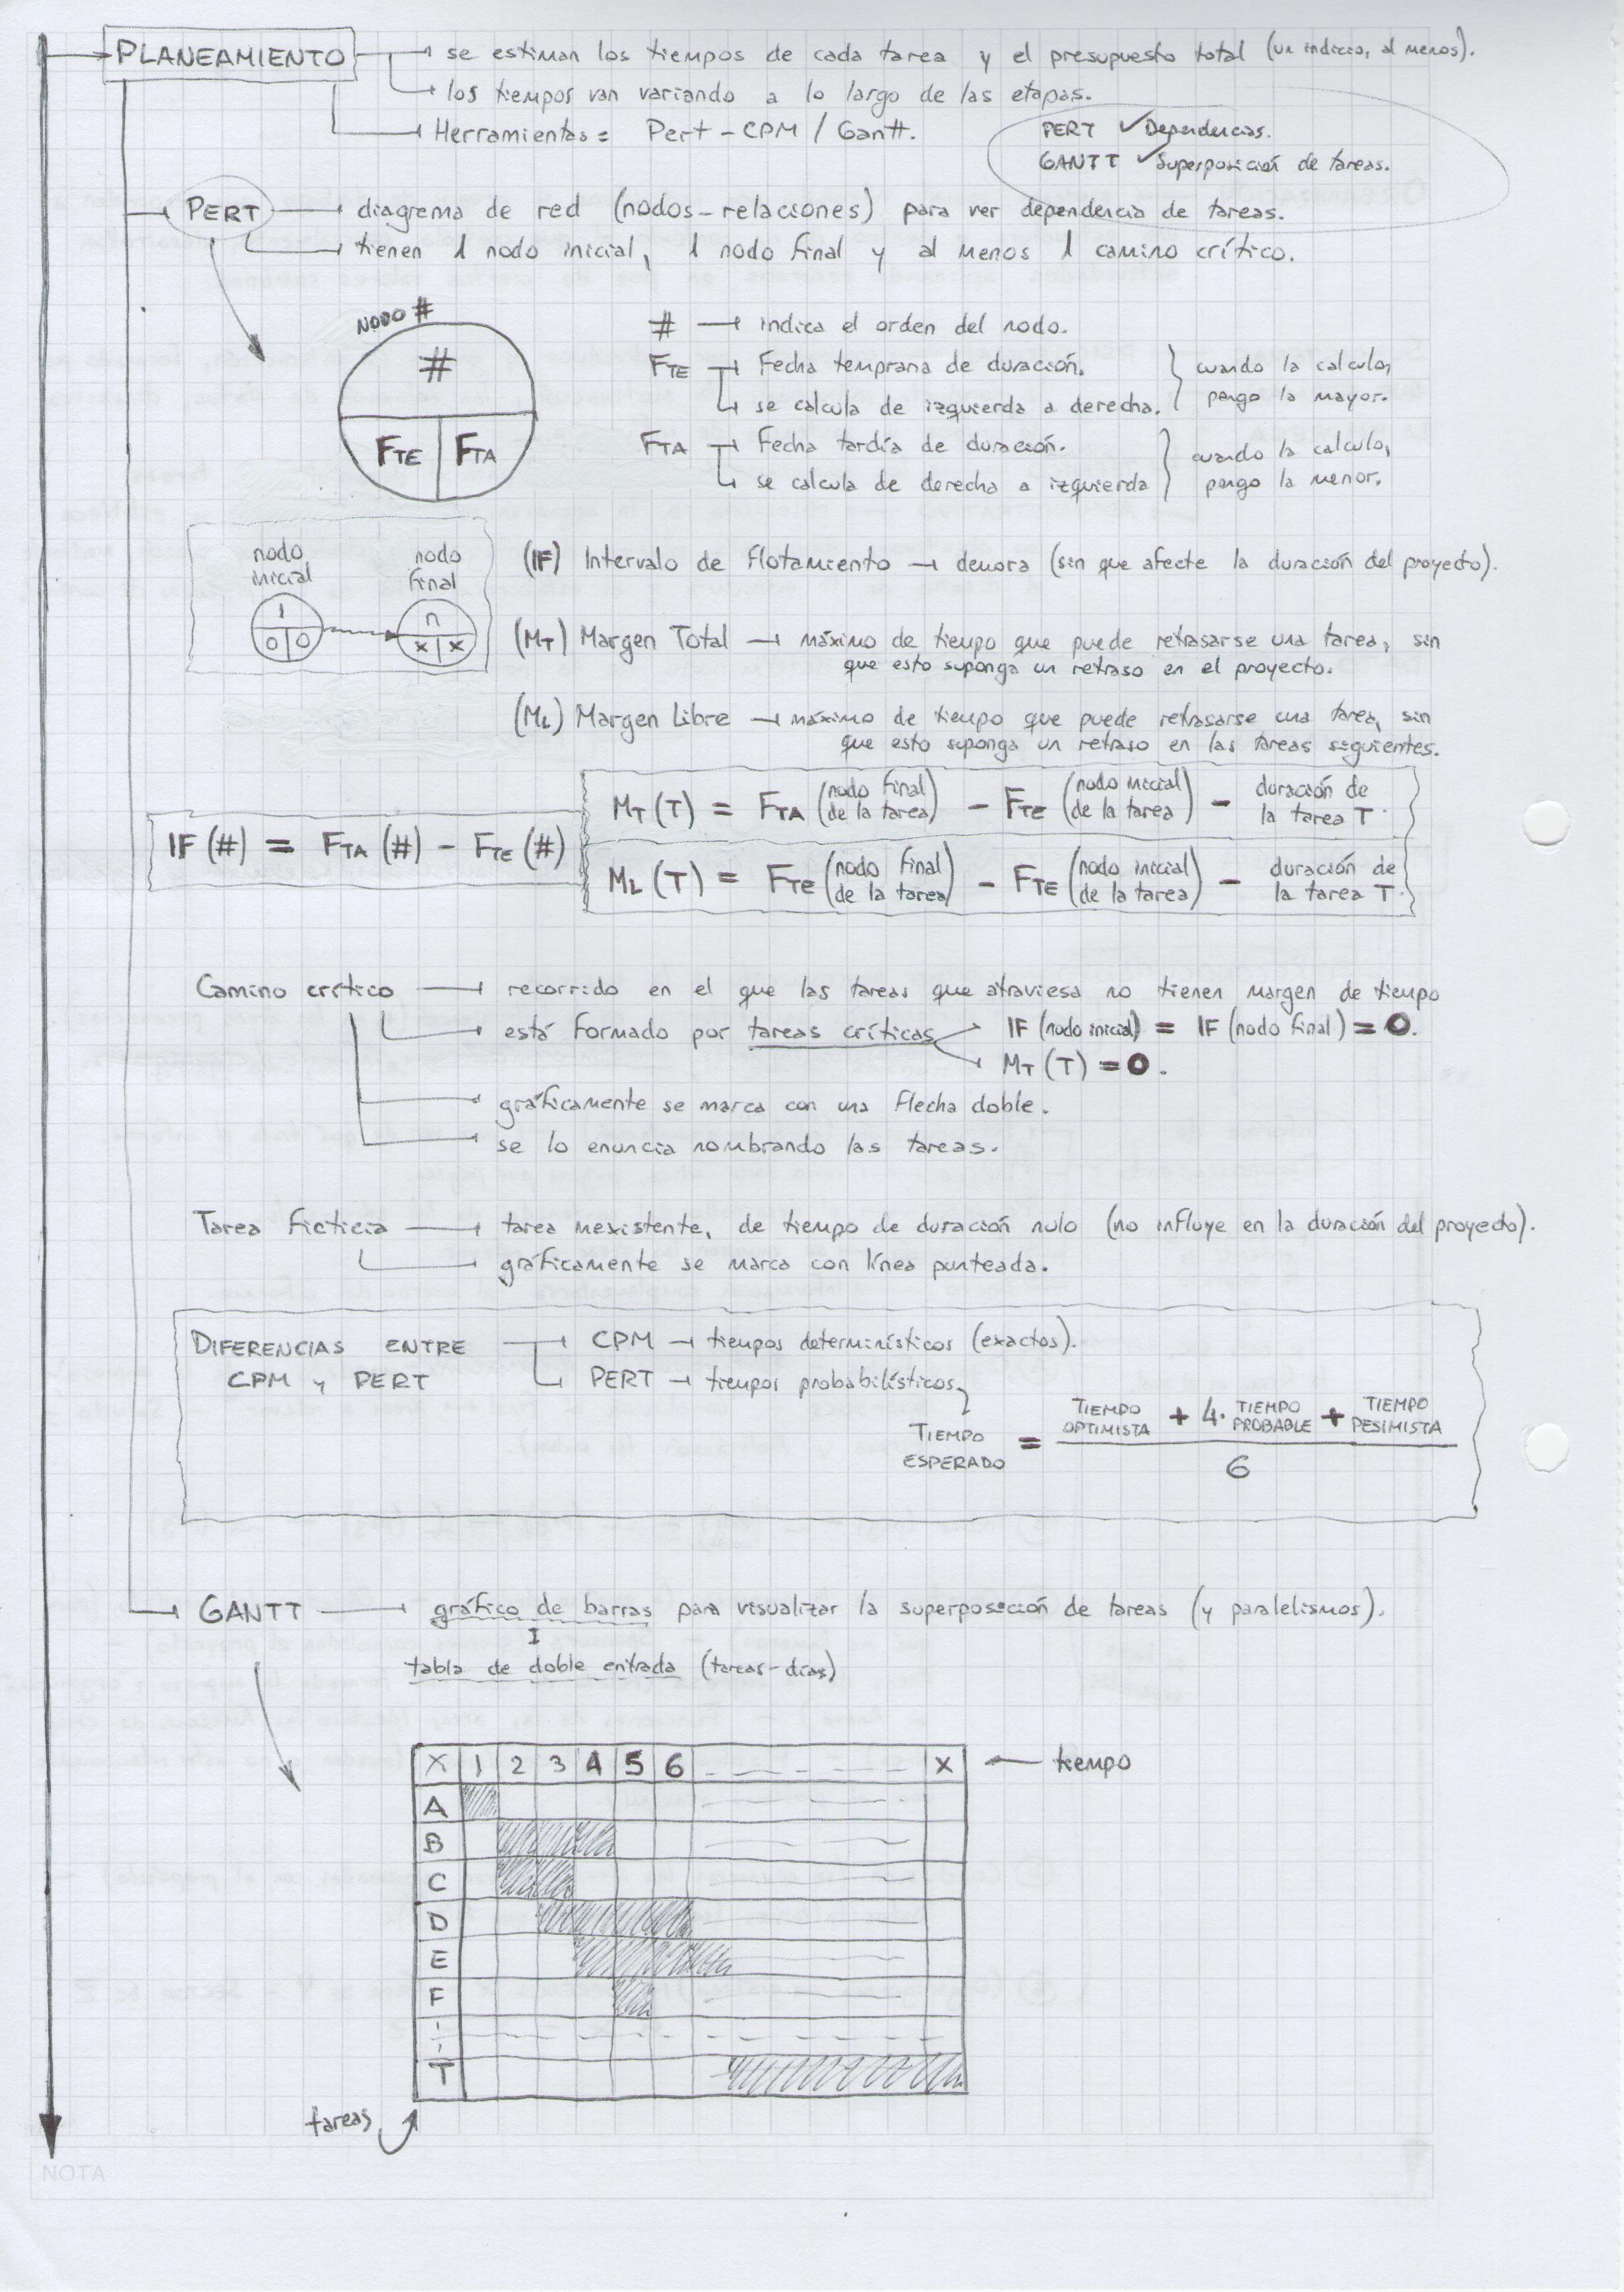 PLANEAMIENTO → se estiman los tiempos de cada tarea y el presupuesto total (un indicio, al menos).
→ los tiempos van variando a lo largo de las etapas.
→ Herramientas = Pert - CPM / Gantt.
PERT ✓ Dependencias.
GANTT ✓ Superposición de tareas.
PERT → diagrama de red (nodos-relaciones) para ver dependencia de tareas.
→ tienen 1 nodo inicial, 1 nodo final y al menos 1 camino crítico.
NODO #
#
FTE FTA
# → indica el orden del nodo.
FTE → Fecha temprana de duración.
→ se calcula de izquierda a derecha.
cuando la calculo,
pongo la mayor.
FTA → Fecha tardía de duración.
→ se calcula de derecha a izquierda
cuando la calculo,
pongo la menor.
nodo inicial
1
0 0
nodo final
n
x x
(IF) Intervalo de Flotamiento → demora (sin que afecte la duración del proyecto).
(MT) Margen Total → máximo de tiempo que puede retrasarse una tarea, sin
que esto suponga un retraso en el proyecto.
(ML) Margen Libre → máximo de tiempo que puede retrasarse una tarea, sin
que esto suponga un retraso en las tareas siguientes.
IF (#) = FTA (#) - FTE (#)
MT (T) = FTA (nodo final de la tarea) - FTE (nodo inicial de la tarea) - duración de la tarea T.
ML (T) = FTE (nodo final de la tarea) - FTE (nodo inicial de la tarea) - duración de la tarea T.
Camino crítico → recorrido en el que las tareas que atraviesa no tienen margen de tiempo
→ está formado por tareas críticas
IF (nodo inicial) = IF (nodo final) = 0.
MT (T) = 0.
→ gráficamente se marca con una flecha doble.
→ se lo enuncia nombrando las tareas.
Tarea Ficticia → tarea inexistente, de tiempo de duración nulo (no influye en la duración del proyecto).
→ gráficamente se marca con línea punteada.
DIFERENCIAS ENTRE
CPM y PERT
→ CPM → tiempos determinísticos (exactos).
→ PERT → tiempos probabilísticos
TIEMPO ESPERADO = TIEMPO OPTIMISTA + 4. TIEMPO PROBABLE + TIEMPO PESIMISTA
6
GANTT → gráfico de barras para visualizar la superposición de tareas (y paralelismos).
tabla de doble entrada (tareas-días)
X 1 2 3 4 5 6 X ← tiempo
A
B
C
D
E
F
T
tareas
NOTA